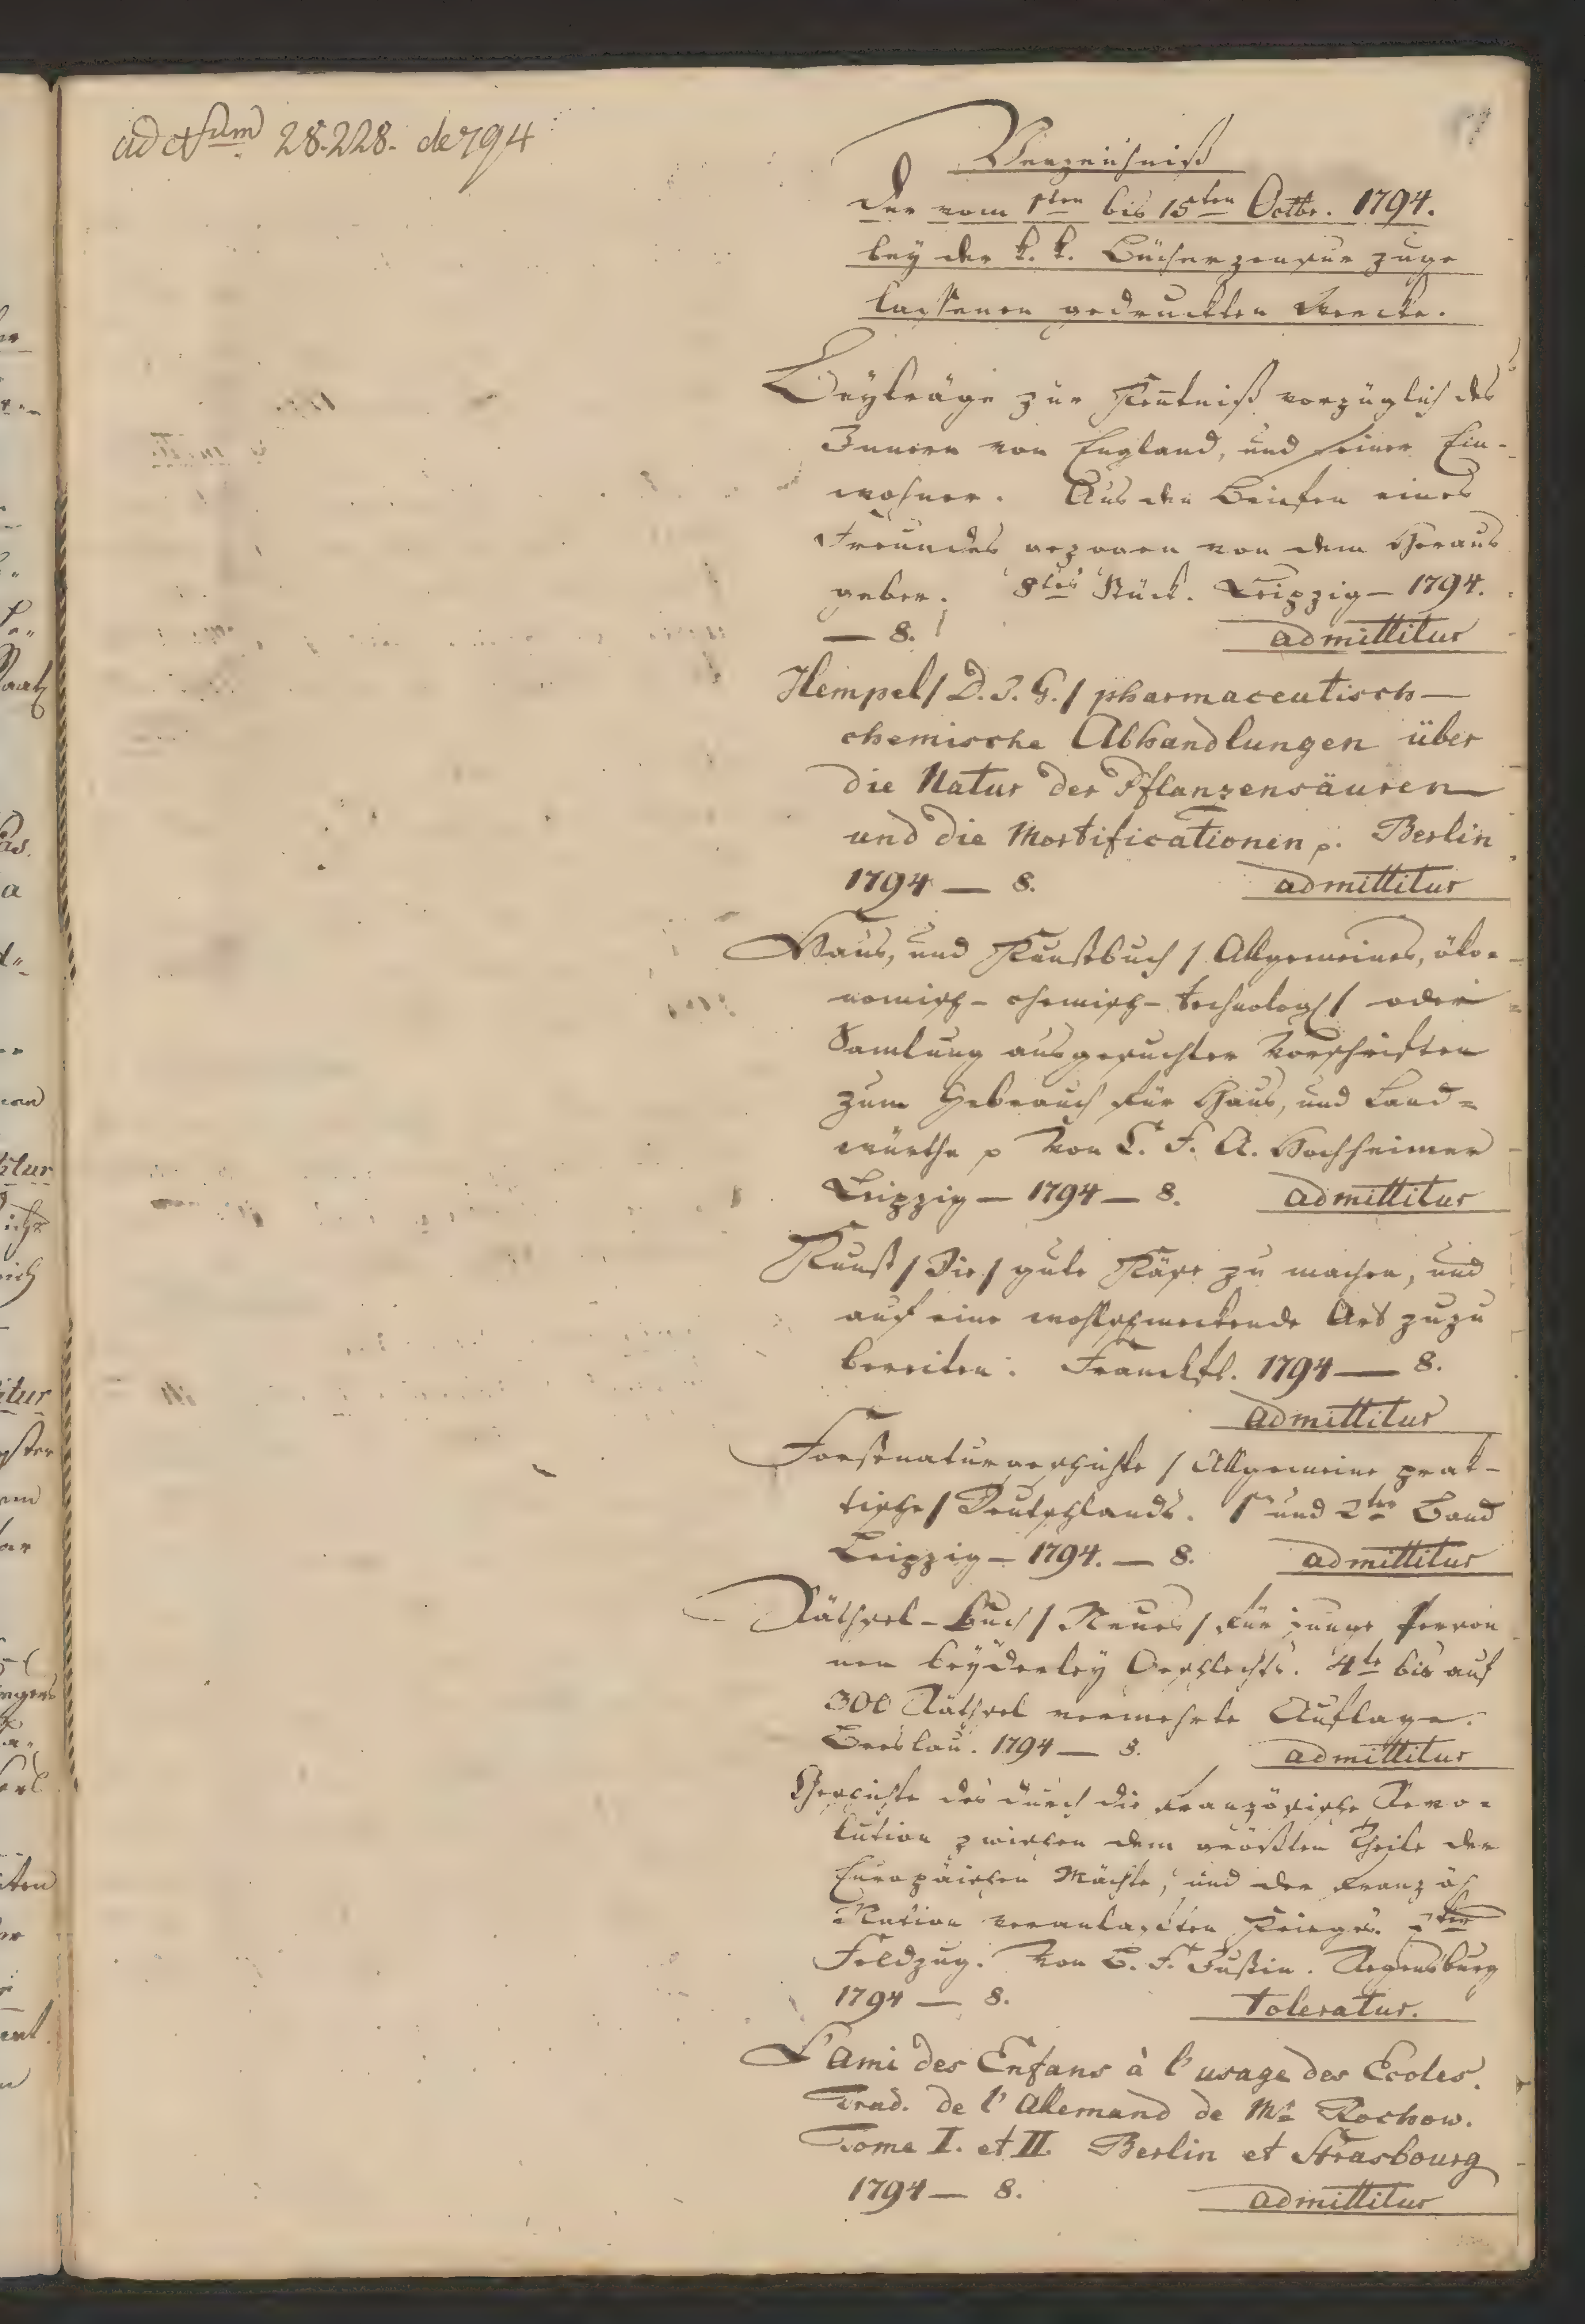 ad Nrum 28.228. de 794
Verzeichniß
der vom 1ten bis 15ten Octbr. 1794.
bey der k. k. Bücherzensur zuge
lassenen gedruckten Wercke.
Beyträge zur Kentniß vorzüglich des
Innern von England, und seiner Ein-
wohner. Aus den Briefen eines
Freundes gezogen von dem Heraus
geber. 8tes Stück. Leipzig – 1794.
— 8. admittitur
Hempel / D. J. G. / pharmaceutisch —
chemische Abhandlungen über
die Natur der Pflanzensäuren
und die Mortificationen p. Berlin
1794 — 8. admittitur
Haus, und Kunstbuch / Allgemeines, öko-
nomisch – chemisch – technolog / oder
Samlung ausgesuchter Vorschriften
zum Gebrauch für Haus, und Land=
würthe p von C. F. A. Hochheimer
Leipzig – 1794 – 8. admittitur
Kunst / Die / gute Käse zu machen, und
auf eine wohlschmeckende Art zuzu
bereiten. Franckft. 1794 — 8.
admittitur
Forstnaturgeschichte / Allgemeine prak-
tische / Deutschlands. 1r und 2ter Band
Leipzig – 1794. – 8. admittitur
Räthsel – Buch / Neues / für junge Person
nen beyderley Geschlechts. 4te bis auf
300 Räthsel vermehrte Auflage.
Breslau. 1794 — 8. admittitur
Geschichte des durch die französische Revo=
lution zwischen dem größten Theile der
Europäischen Mächte, und der französ
Nation veranlaßten Krieges.
Feldzug. Von C. F. Justin. Regensburg
1794 — 8. toleratur.
L'Ami des Enfans à l'usage des Ecoles.
Trad. de l'Allemand de Mr Rochow.
Tome I. et II. Berlin et Strasbourg
1794 — 8. admittitur